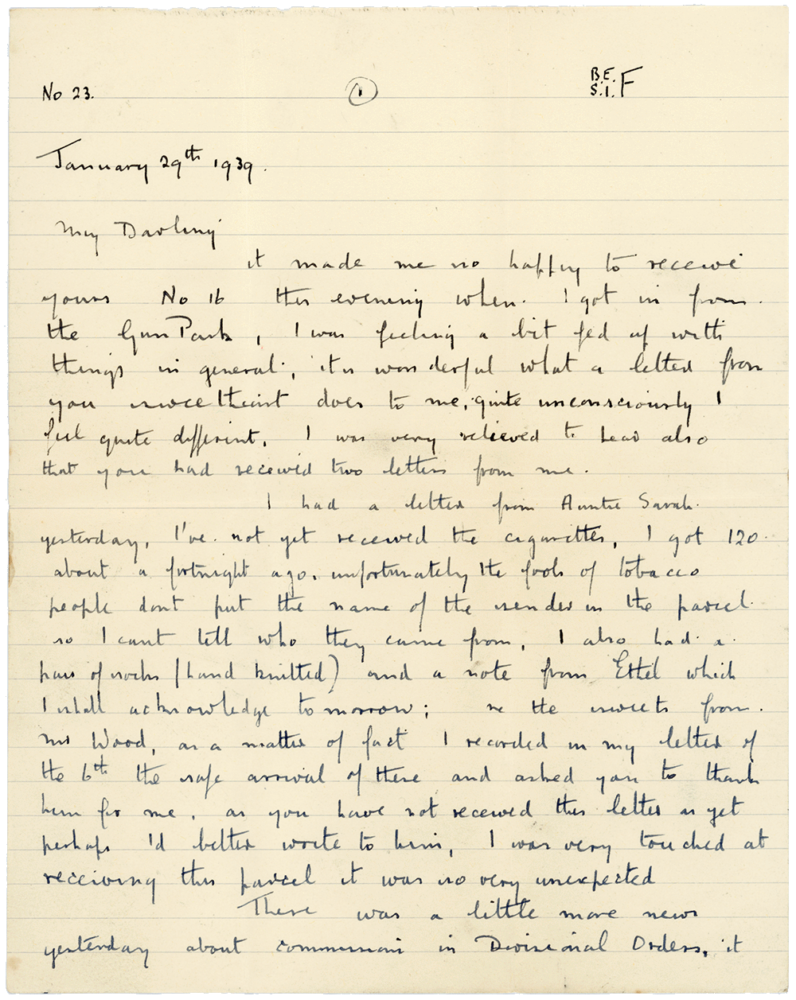 No 23. 1 B.E.F
S.I.
January 29th 1939.
My Darling
it made me so happy to receive
yours No 16 this evening when. I got in from.
the Gun Park, I was feeling a bit fed up with
things in general, it is wonderful what a letter from
you sweetheart does to me, quite unconsciously I
feel quite different. I was very relieved to hear also
that you had received two letters from me.
I had a letter from Auntie Sarah.
yesterday, I've not yet received the cigarettes, I got 120.
about a fortnight ago. unfortunately the fools of tobacco
people dont put the name of the sender in the parcel.
so I cant tell who they came from, I also had a.
pair of socks (hand knitted) and a note from Ethel which
I shall acknowledge tomorrow; re the sweets from.
Mr Wood, as a matter of fact I recorded in my letter of
the 6th the safe arrival of these and asked you to thank
him for me, as you have not received this letter as yet
perhaps I'd better write to him, I was very touched at
receiving this parcel it was so very unexpected
There was a little more news
yesterday about commissions in Divisional Orders, it